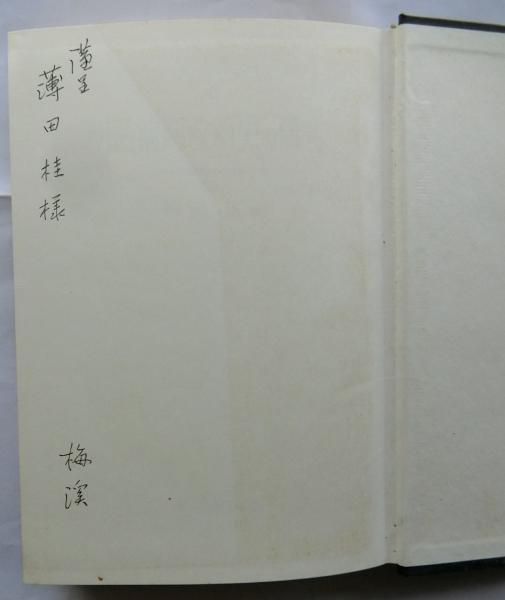 謹呈
薄田桂様
梅溪